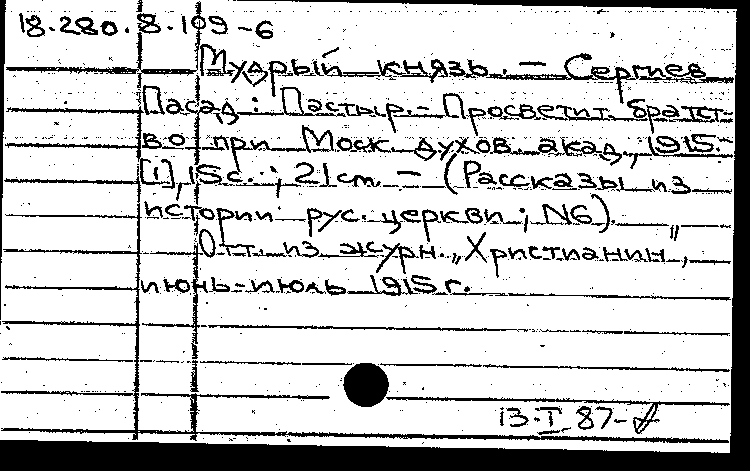 18.280.8.109-6
Мудрый князь. — Сергиев
Пасад: Пастыр.-Просветит. братст-
во при Моск. духов. акад., 1915.-
[1], 15 с.; 21 см. — (Рассказы из
истории рус. церкви; N6)
Отт. из журн. „Христианин",
июнь-июль 1915 г.
13.I.87-